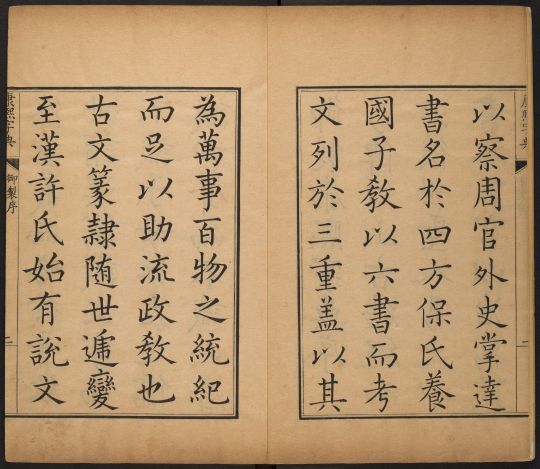 以察周官外史掌達
書名於四方保氏養
國子教以六書而考
文列於三重蓋以其
為萬事百物之統紀
而足以助流政教也
古文篆隸随世遞變
至漢許氏始有說文
康熙字典
御製序
二